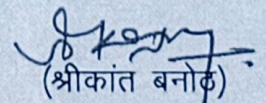 (श्रीकांत बनोठ)